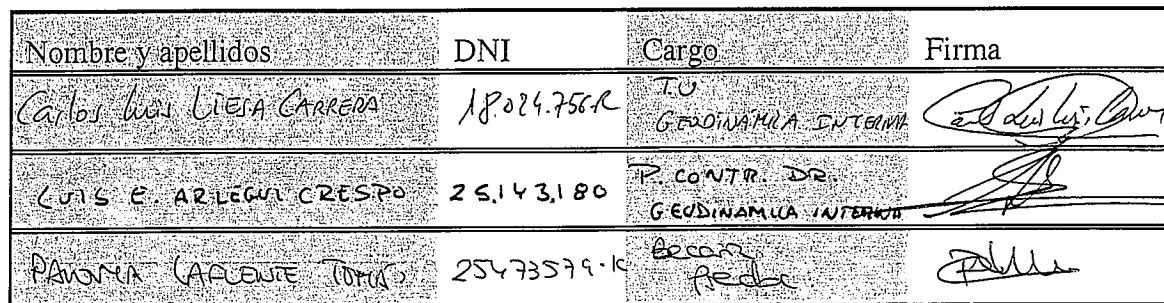 Nombre y apellidos DNI Cargo Firma
Carlos Luis LIESA CARRERA 18.024.756-R T.U
GEODINÁMICA INTERNA
LUIS E. ARLEGUI CRESPO 25.143.180 P. CONTR. DR.
GEODINAMICA INTERNA
LAFUENTE TOMÁS 25473579-K